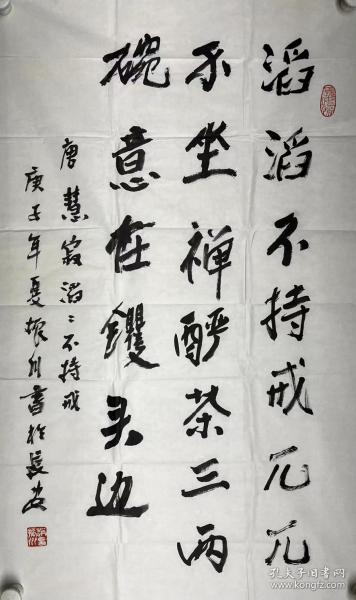 滔滔不持戒兀兀
不坐禅酽茶三两
碗意在䦆头边
唐慧寂滔滔不持戒
庚子年夏振川书於长安
孔夫子旧书网